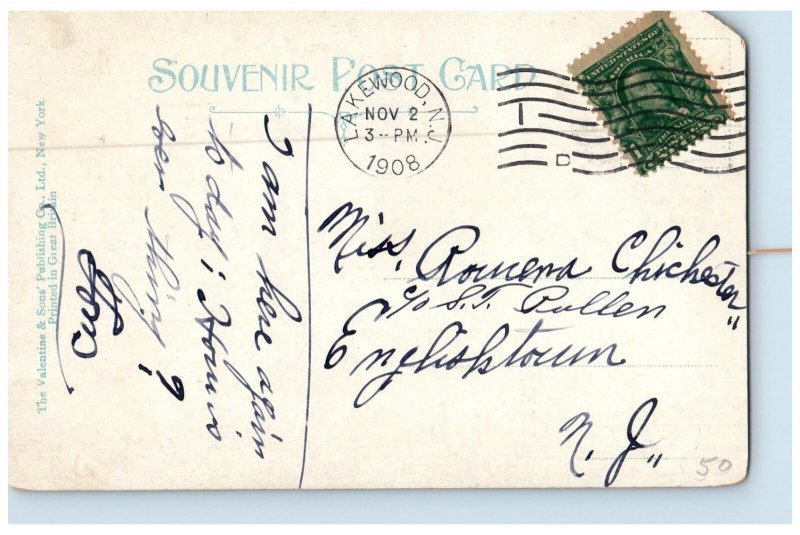 SOUVENIR POST CARD
LAKEWOOD, N.J.
NOV 2
3-PM.
1908
1
D
UNITED STATES OF
AMERICA
The Valentine & Sons' Publishing Co., Ltd., New York.
Printed in Great Britain
I am here again
to day; How is
every thing?
Miss. Romena Chichester
c/o S.T. Pullen
Englishtown
N. J.
50